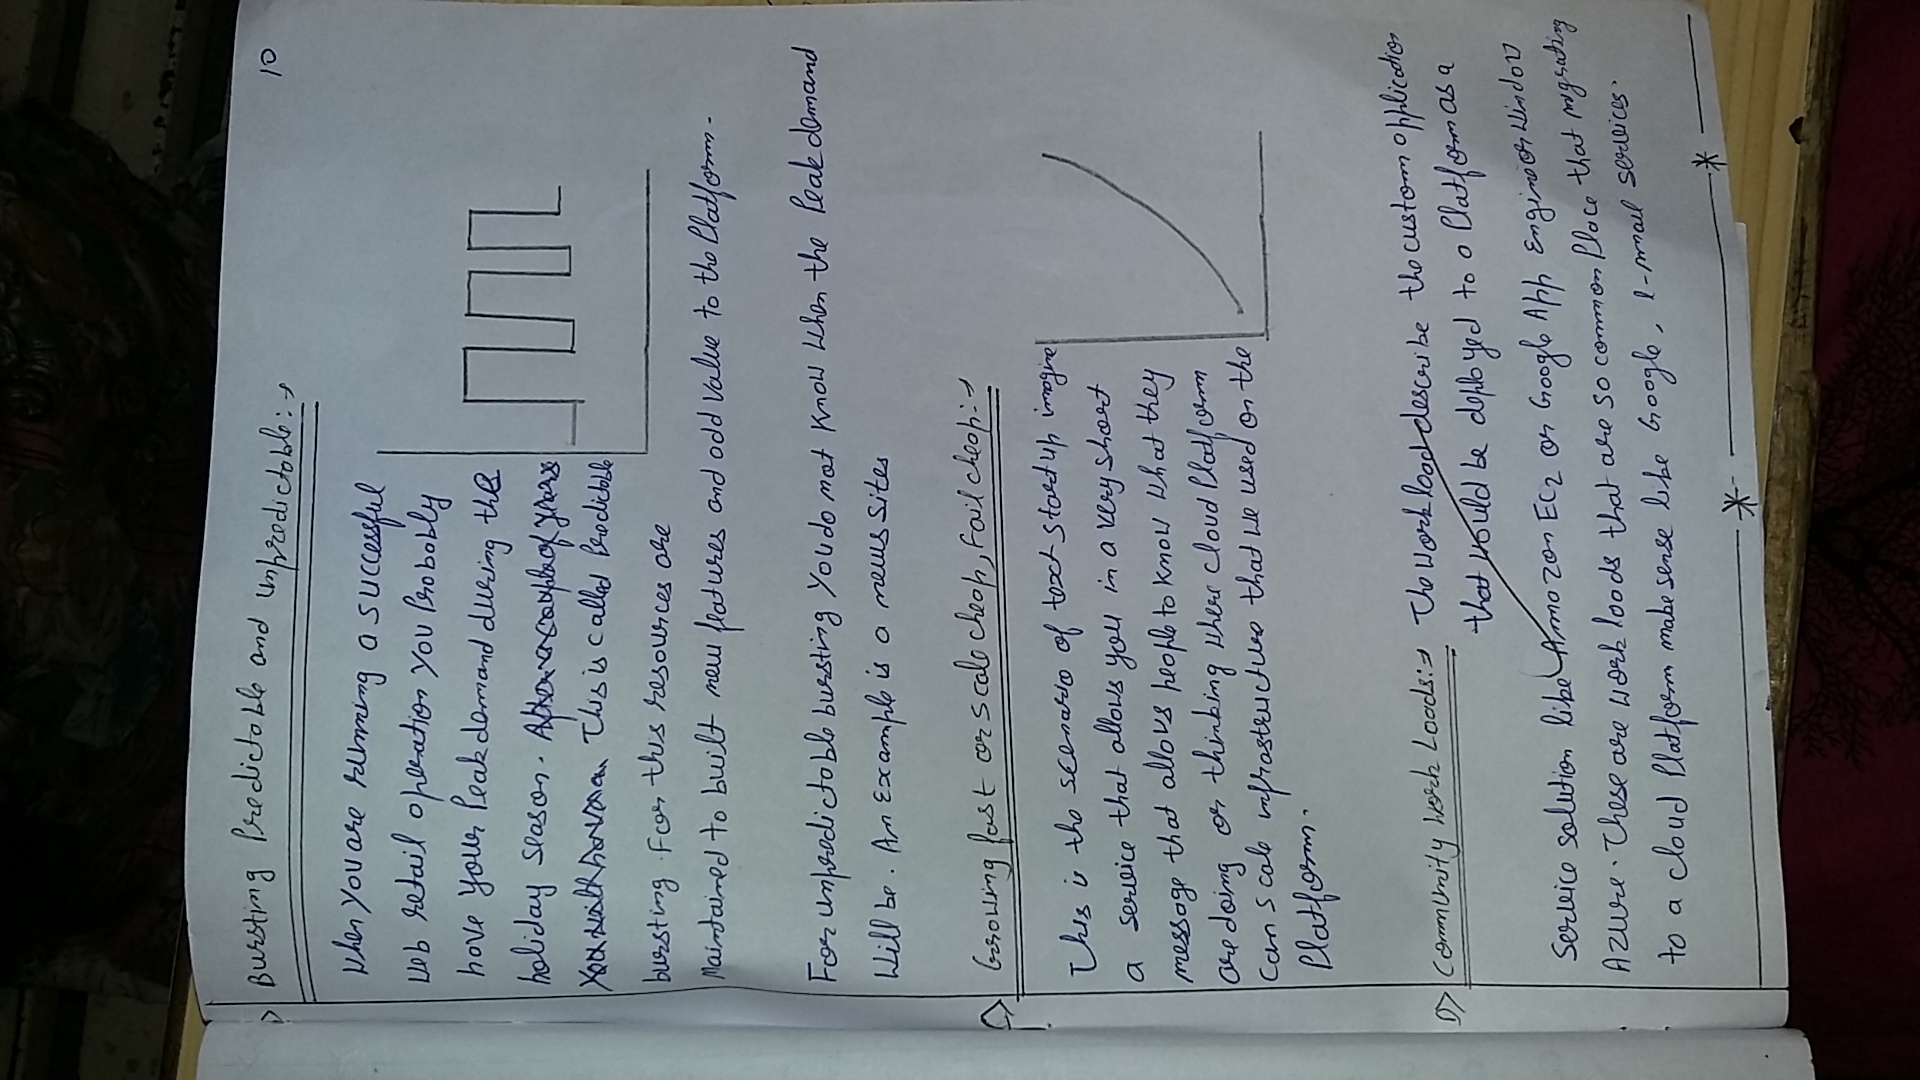 10
Bursting Predictable and unpredictable:→
When you are running a successful
web retail operation you Probably
have your Peak demand during the
holiday season. After a couple of years
You will have an This is called Predictable
bursting. For this resources are
Maintained to built new features and add value to the Platform.
For unpredictable bursting you do not know when the Peak demand
Will be. An Example is a news sites
Growing fast or scale cheap, Fail cheap:→
This is the scenario of text startup imagine
a service that allows you in a very short
message that allows people to know what they
are doing or thinking where cloud Platform
can scale infrastructure that we used on the
Platform.
D> Community Work Loads:→ The work load describe the custom application
that would be deployed to a Platform as a
Service solution like Ammozon EC2 or Google App Engine or Window
Azure. These are work loads that are so common Place that migrating
to a cloud Platform make sense like Google, e-mail services.